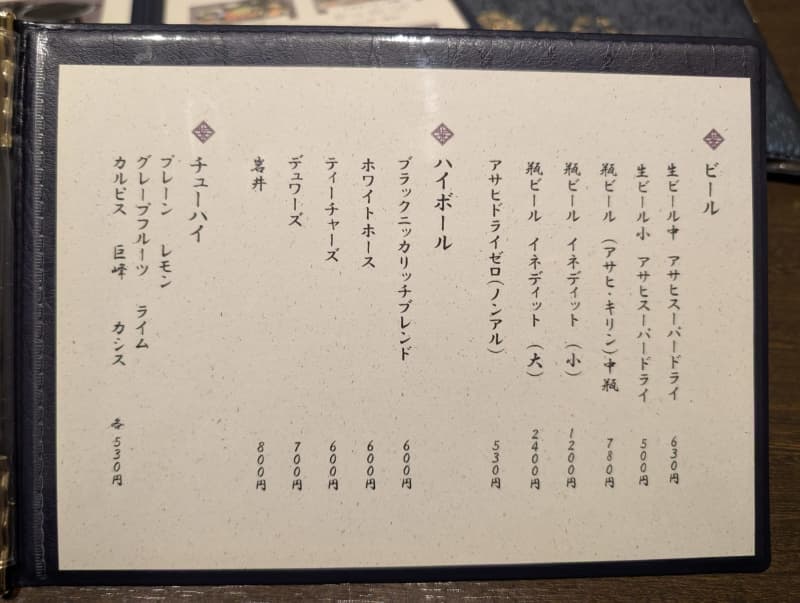 ビール
生ビール中 アサヒスーパードライ 630円
生ビール小 アサヒスーパードライ 500円
瓶ビール (アサヒ・キリン)中瓶 780円
瓶ビール イネディット (小) 1200円
瓶ビール イネディット (大) 2400円
アサヒドライゼロ(ノンアル) 530円
ハイボール
ブラックニッカリッチブレンド 600円
ホワイトホース 600円
ティーチャーズ 600円
デュワーズ 700円
岩井 800円
チューハイ
プレーン レモン
グレープフルーツ ライム
カルピス 巨峰 カシス 各530円